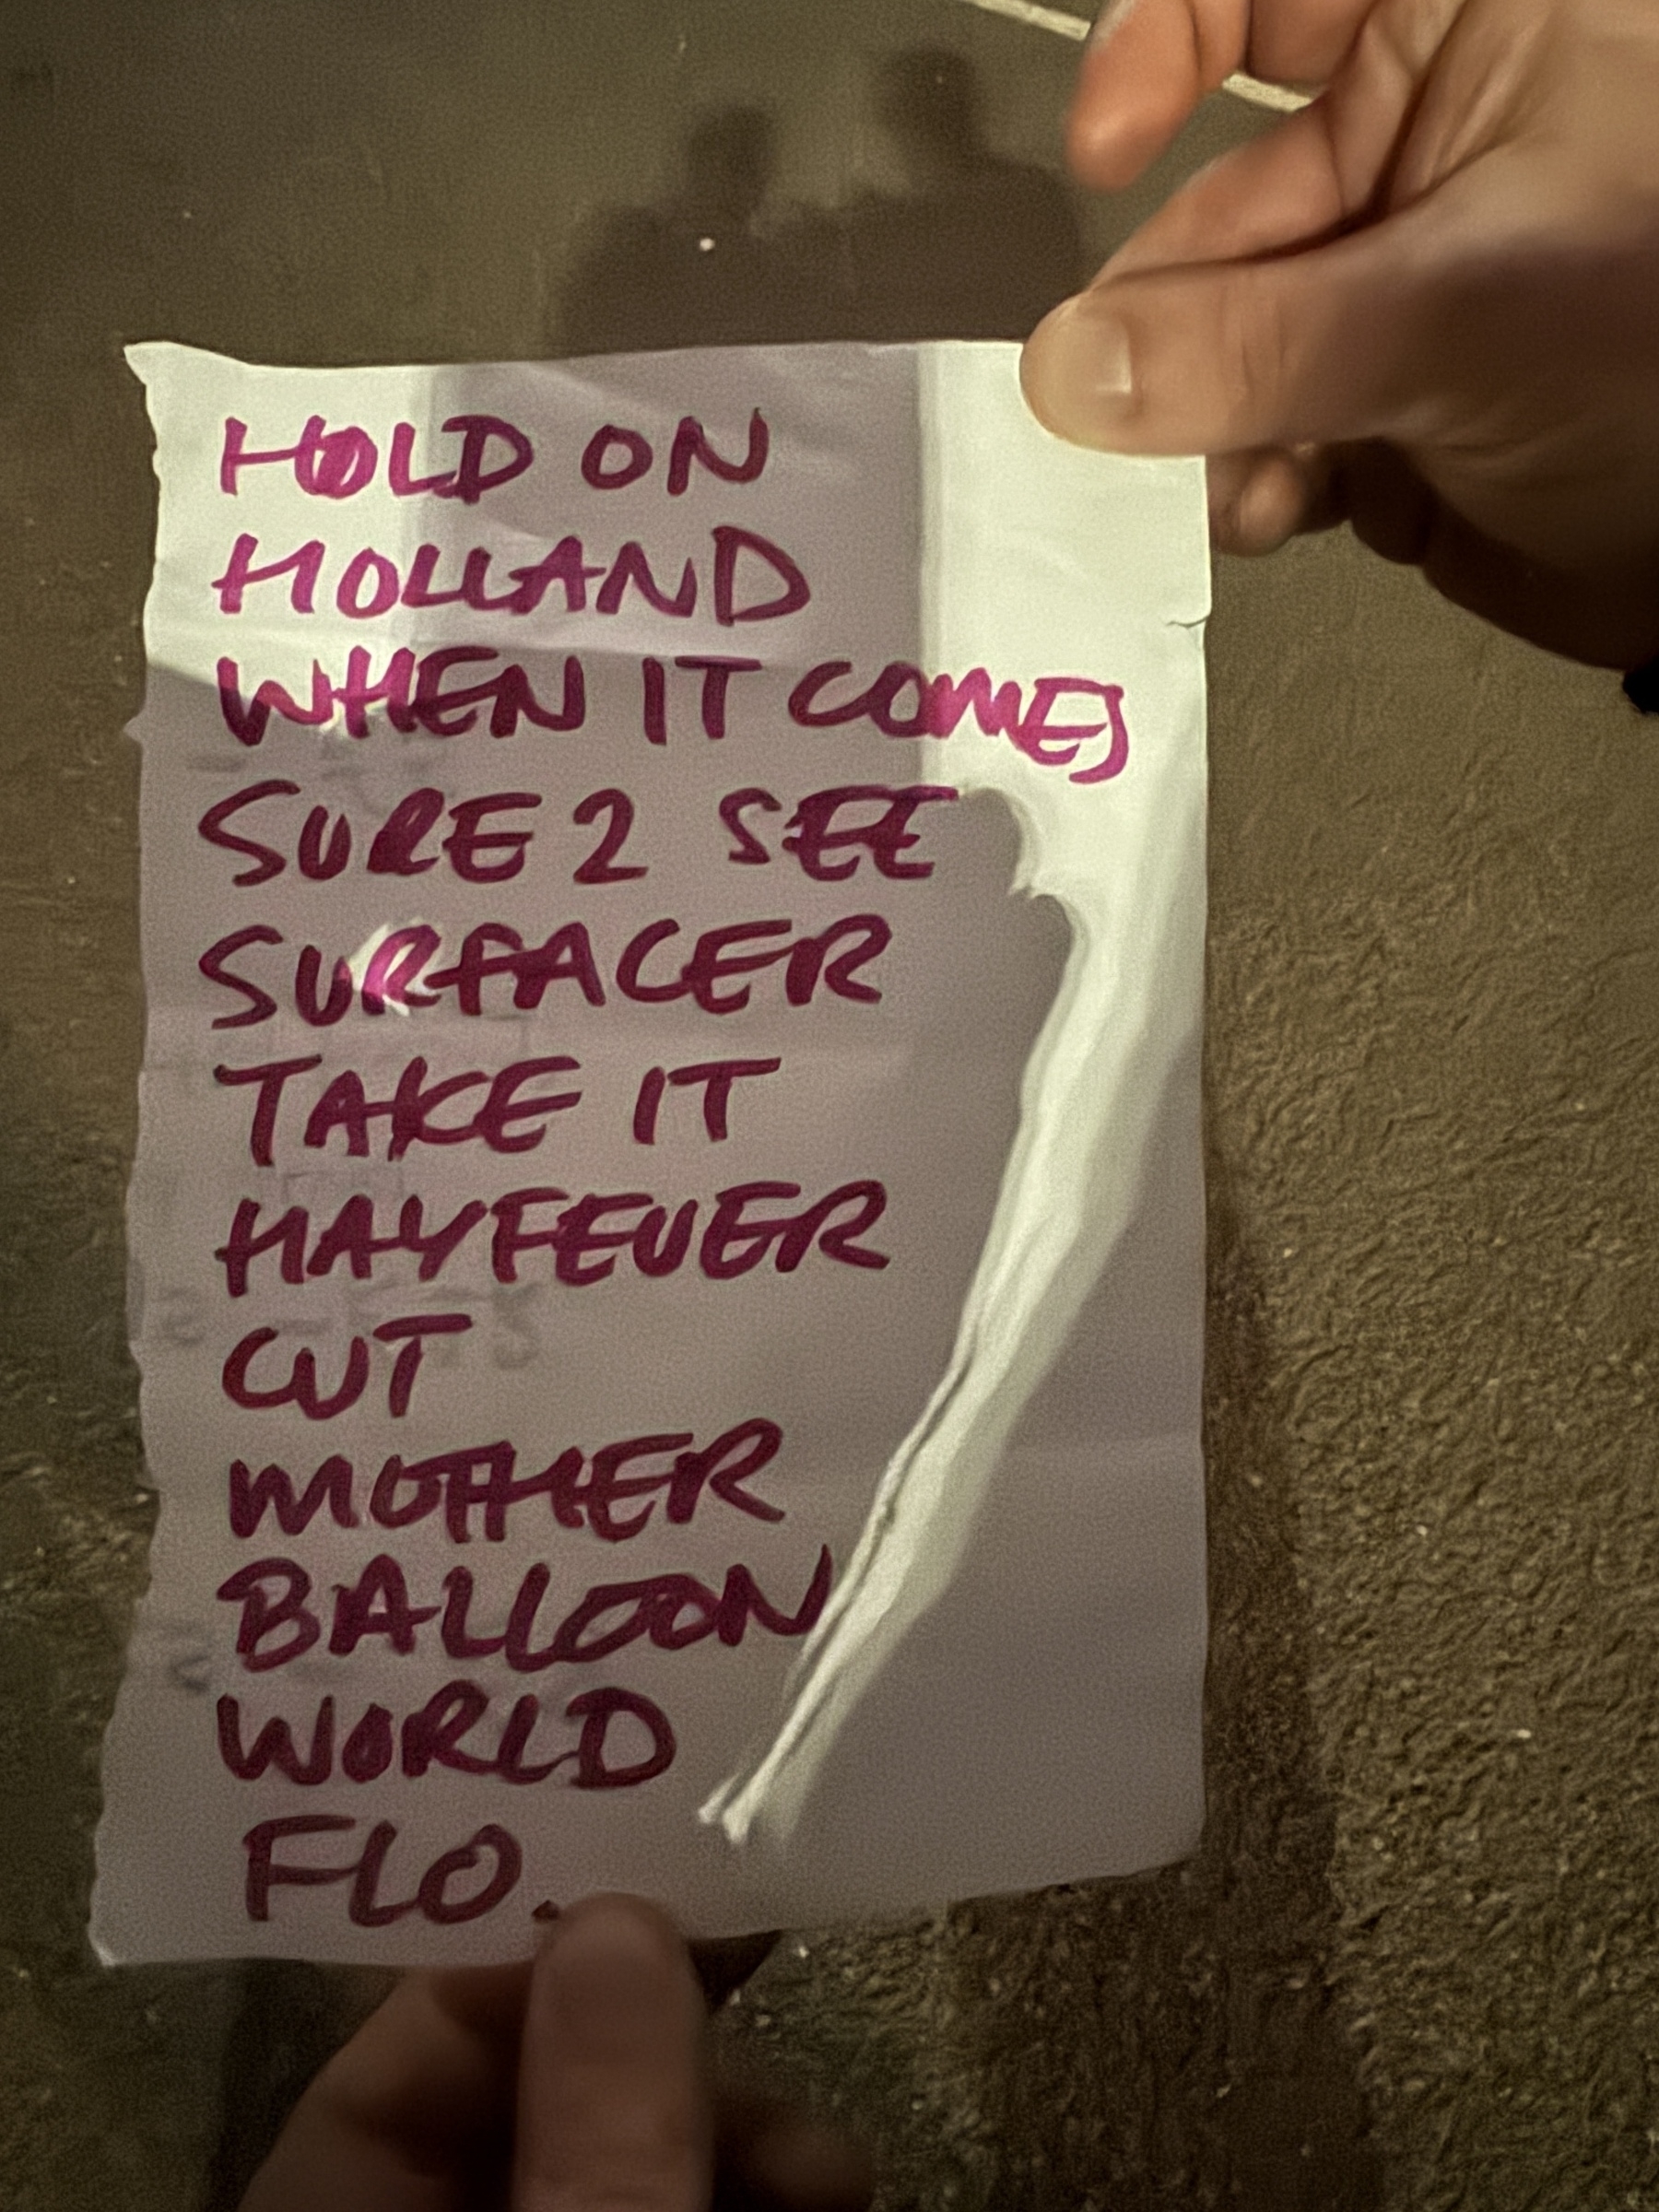 HOLD ON
HOLLAND
WHEN IT COMES
SURE 2 SEE
SURFACER
TAKE IT
HAYFEVER
CUT
MOTHER
BALLOON
WORLD
FLO.